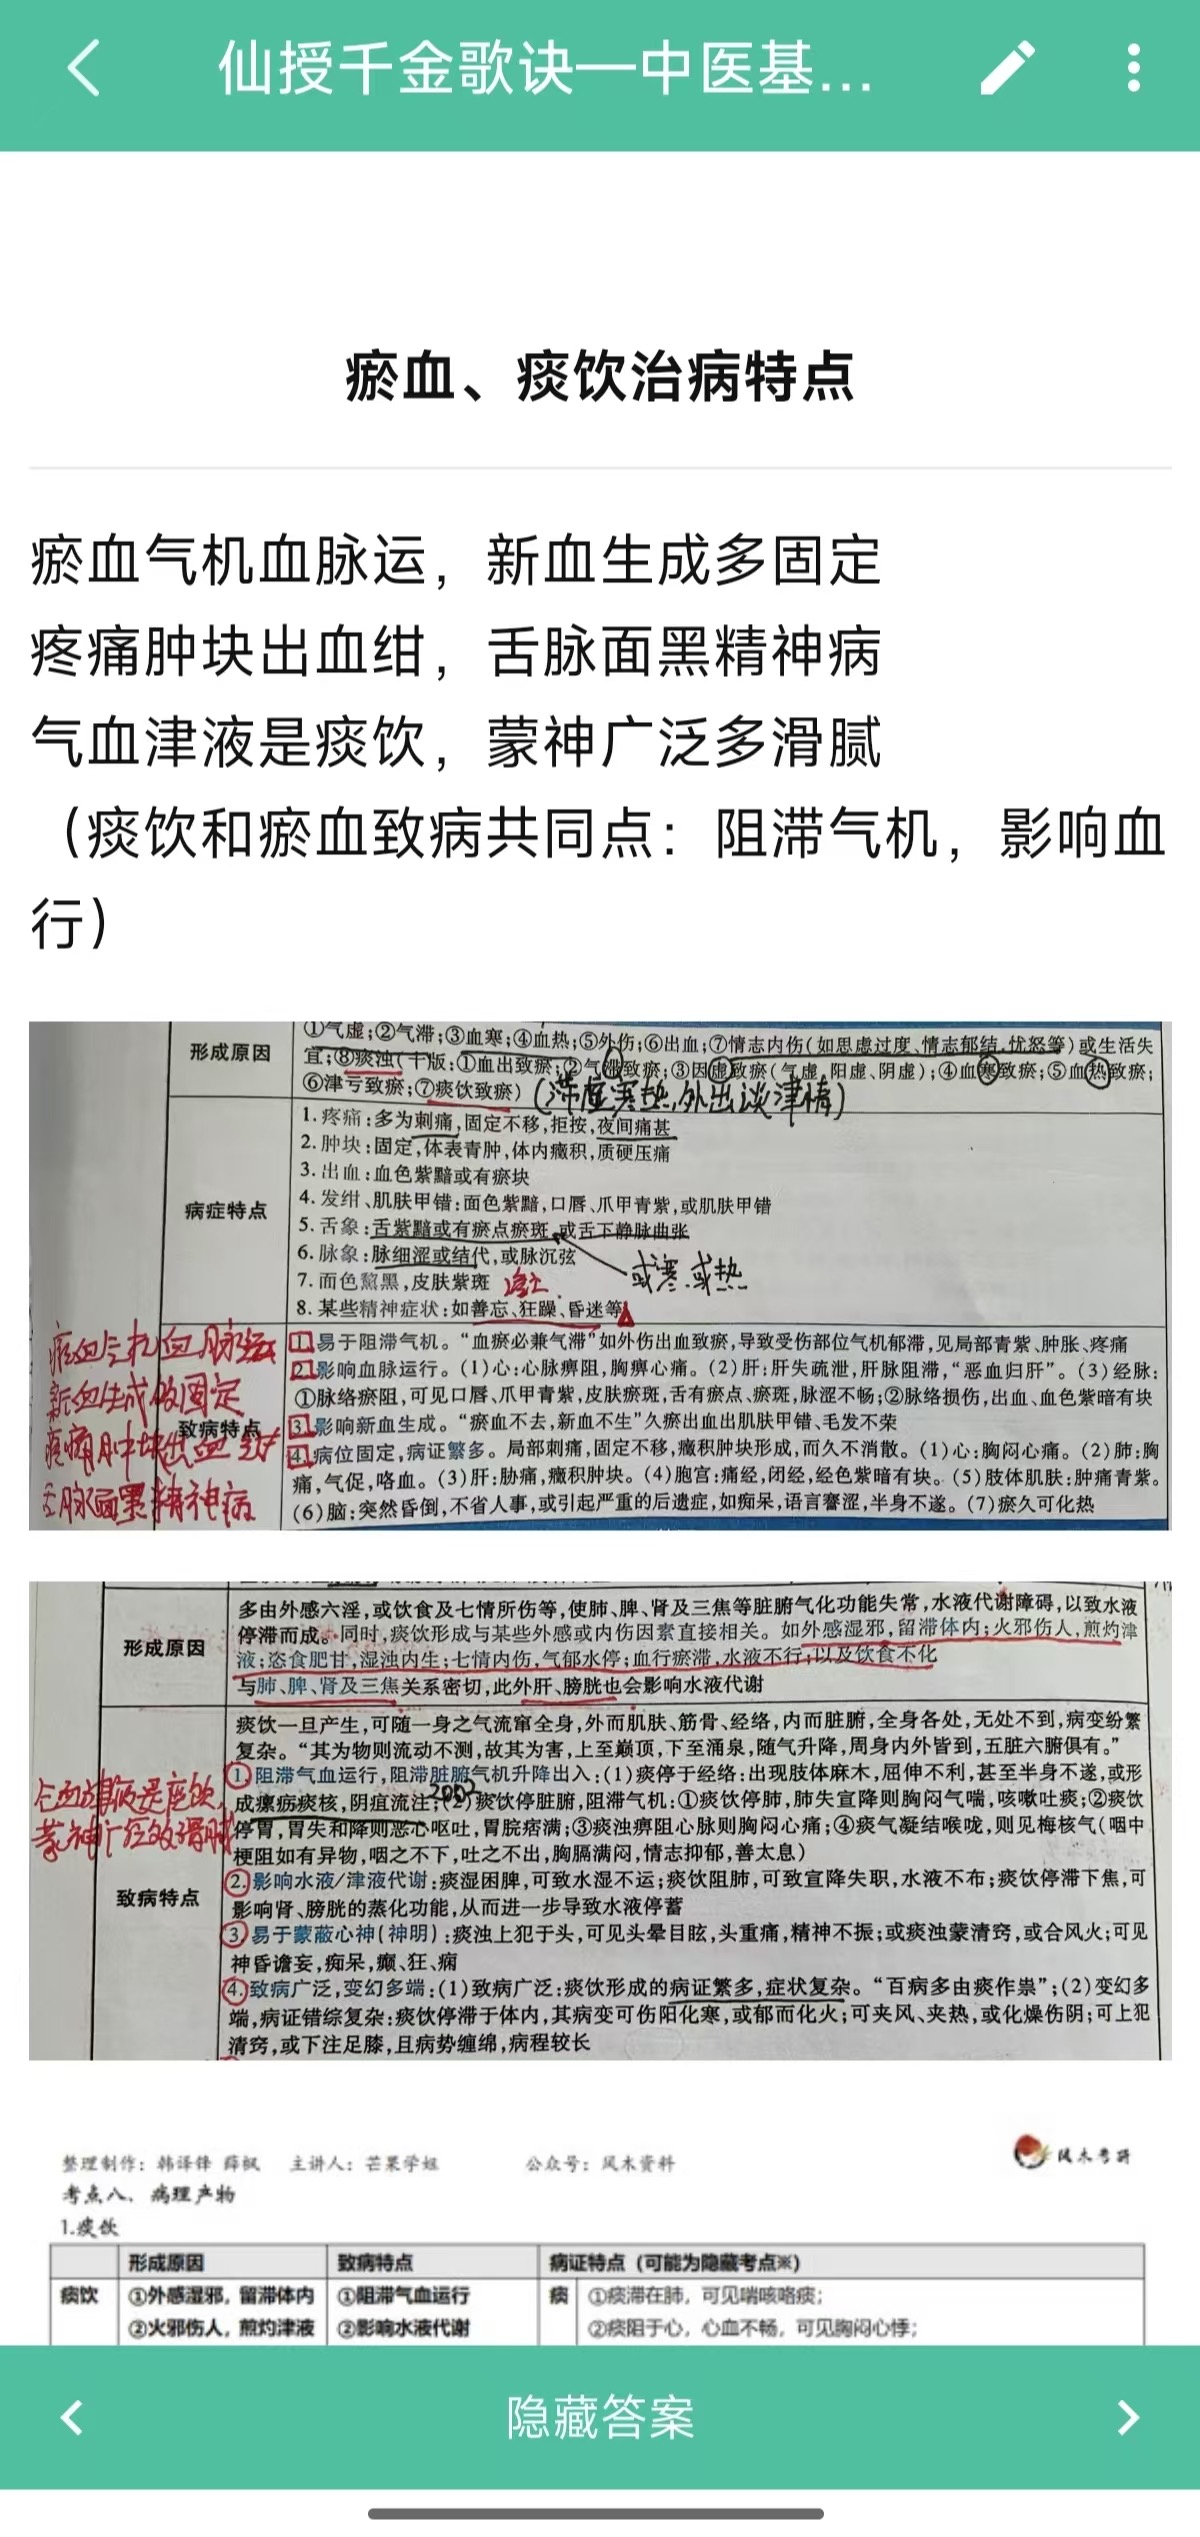 仙授千金歌诀—中医基...
瘀血、痰饮治病特点
瘀血气机血脉运，新血生成多固定
疼痛肿块出血绀，舌脉面黑精神病
气血津液是痰饮，蒙神广泛多滑腻
（痰饮和瘀血致病共同点：阻滞气机，影响血
行）
形成原因
①气虚;②气滞;③血寒;④血热;⑤外伤;⑥出血;⑦情志内伤(如思虑过度、情志郁结、忧怒等)或生活失
宜;⑧痰浊(十版:①血出致瘀;②气滞致瘀;③因虚致瘀(气虚、阳虚、阴虚);④血寒致瘀;⑤血热致瘀;
⑥津亏致瘀;⑦痰饮致瘀)
(滞虚寒热,外出谈津情)
病症特点
1. 疼痛:多为刺痛,固定不移,拒按,夜间痛甚
2. 肿块:固定,体表青肿,体内癥积,质硬压痛
3. 出血:血色紫黯或有瘀块
4. 发绀、肌肤甲错:面色紫黯,口唇、爪甲青紫,或肌肤甲错
5. 舌象:舌紫黯或有瘀点瘀斑,或舌下静脉曲张
6. 脉象:脉细涩或结代,或脉沉弦
或寒.或热
7. 面色黧黑,皮肤紫斑
8. 某些精神症状:如善忘、狂躁、昏迷等
瘀血气机血脉运
新血生成多固定
疼痛肿块出血绀
舌脉面黑精神病
致病特点
1.易于阻滞气机。“血瘀必兼气滞”如外伤出血致瘀,导致受伤部位气机郁滞,见局部青紫、肿胀、疼痛
2.影响血脉运行。(1)心:心脉痹阻,胸痹心痛。(2)肝:肝失疏泄,肝脉阻滞,“恶血归肝”。(3)经脉:
①脉络瘀阻,可见口唇、爪甲青紫,皮肤瘀斑,舌有瘀点、瘀斑,脉涩不畅;②脉络损伤,出血、血色紫暗有块
3.影响新血生成。“瘀血不去,新血不生”久瘀出血出肌肤甲错、毛发不荣
4.病位固定,病证繁多。局部刺痛,固定不移,癥积肿块形成,而久不消散。(1)心:胸闷心痛。(2)肺:胸
痛,气促,咯血。(3)肝:胁痛,癥积肿块。(4)胞宫:痛经,闭经,经色紫暗有块。(5)肢体肌肤:肿痛青紫。
(6)脑:突然昏倒,不省人事,或引起严重的后遗症,如痴呆,语言謇涩,半身不遂。(7)瘀久可化热
形成原因
多由外感六淫,或饮食及七情所伤等,使肺、脾、肾及三焦等脏腑气化功能失常,水液代谢障碍,以致水液
停滞而成。同时,痰饮形成与某些外感或内伤因素直接相关。如外感湿邪,留滞体内;火邪伤人,煎灼津
液;恣食肥甘,湿浊内生;七情内伤,气郁水停;血行瘀滞,水液不行;以及饮食不化
与肺、脾、肾及三焦关系密切,此外肝、膀胱也会影响水液代谢
气血津液是痰饮
蒙神广泛多滑腻
致病特点
痰饮一旦产生,可随一身之气流窜全身,外而肌肤、筋骨、经络,内而脏腑,全身各处,无处不到,病变纷繁
复杂。“其为物则流动不测,故其为害,上至巅顶,下至涌泉,随气升降,周身内外皆到,五脏六腑俱有。”
①阻滞气血运行,阻滞脏腑气机升降出入:(1)痰停于经络:出现肢体麻木,屈伸不利,甚至半身不遂,或形
成瘰疬痰核,阴疽流注;(2)痰饮停脏腑,阻滞气机:①痰饮停肺,肺失宣降则胸闷气喘,咳嗽吐痰;②痰饮
2002
停胃,胃失和降则恶心呕吐,胃脘痞满;③痰浊痹阻心脉则胸闷心痛;④痰气凝结喉咙,则见梅核气(咽中
梗阻如有异物,咽之不下,吐之不出,胸膈满闷,情志抑郁,善太息)
②影响水液/津液代谢:痰湿困脾,可致水湿不运;痰饮阻肺,可致宣降失职,水液不布;痰饮停滞下焦,可
影响肾、膀胱的蒸化功能,从而进一步导致水液停蓄
③易于蒙蔽心神(神明):痰浊上犯于头,可见头晕目眩,头重痛,精神不振;或痰浊蒙清窍,或合风火;可见
神昏谵妄,痴呆,癫、狂、痫
④致病广泛,变幻多端:(1)致病广泛:痰饮形成的病证繁多,症状复杂。“百病多由痰作祟”;(2)变幻多
端,病证错综复杂:痰饮停滞于体内,其病变可伤阳化寒,或郁而化火;可夹风、夹热,或化燥伤阴;可上犯
清窍,或下注足膝,且病势缠绵,病程较长
整理制作：韩译锋 薛枫 主讲人：芒果学姐 公众号：风木资料
风木考研
考点八、病理产物
1.痰饮
形成原因 致病特点 病证特点（可能为隐藏考点※）
痰饮 ①外感湿邪，留滞体内 ①阻滞气血运行 痰 ①痰滞在肺，可见喘咳咯痰；
②火邪伤人，煎灼津液 ②影响水液代谢 ②痰阻于心，心血不畅，可见胸闷心悸；
隐藏答案